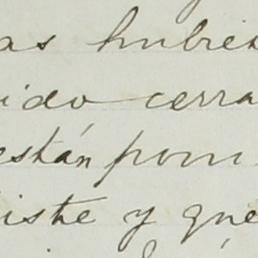 as hubies
ido cerra
están pom
iste y que